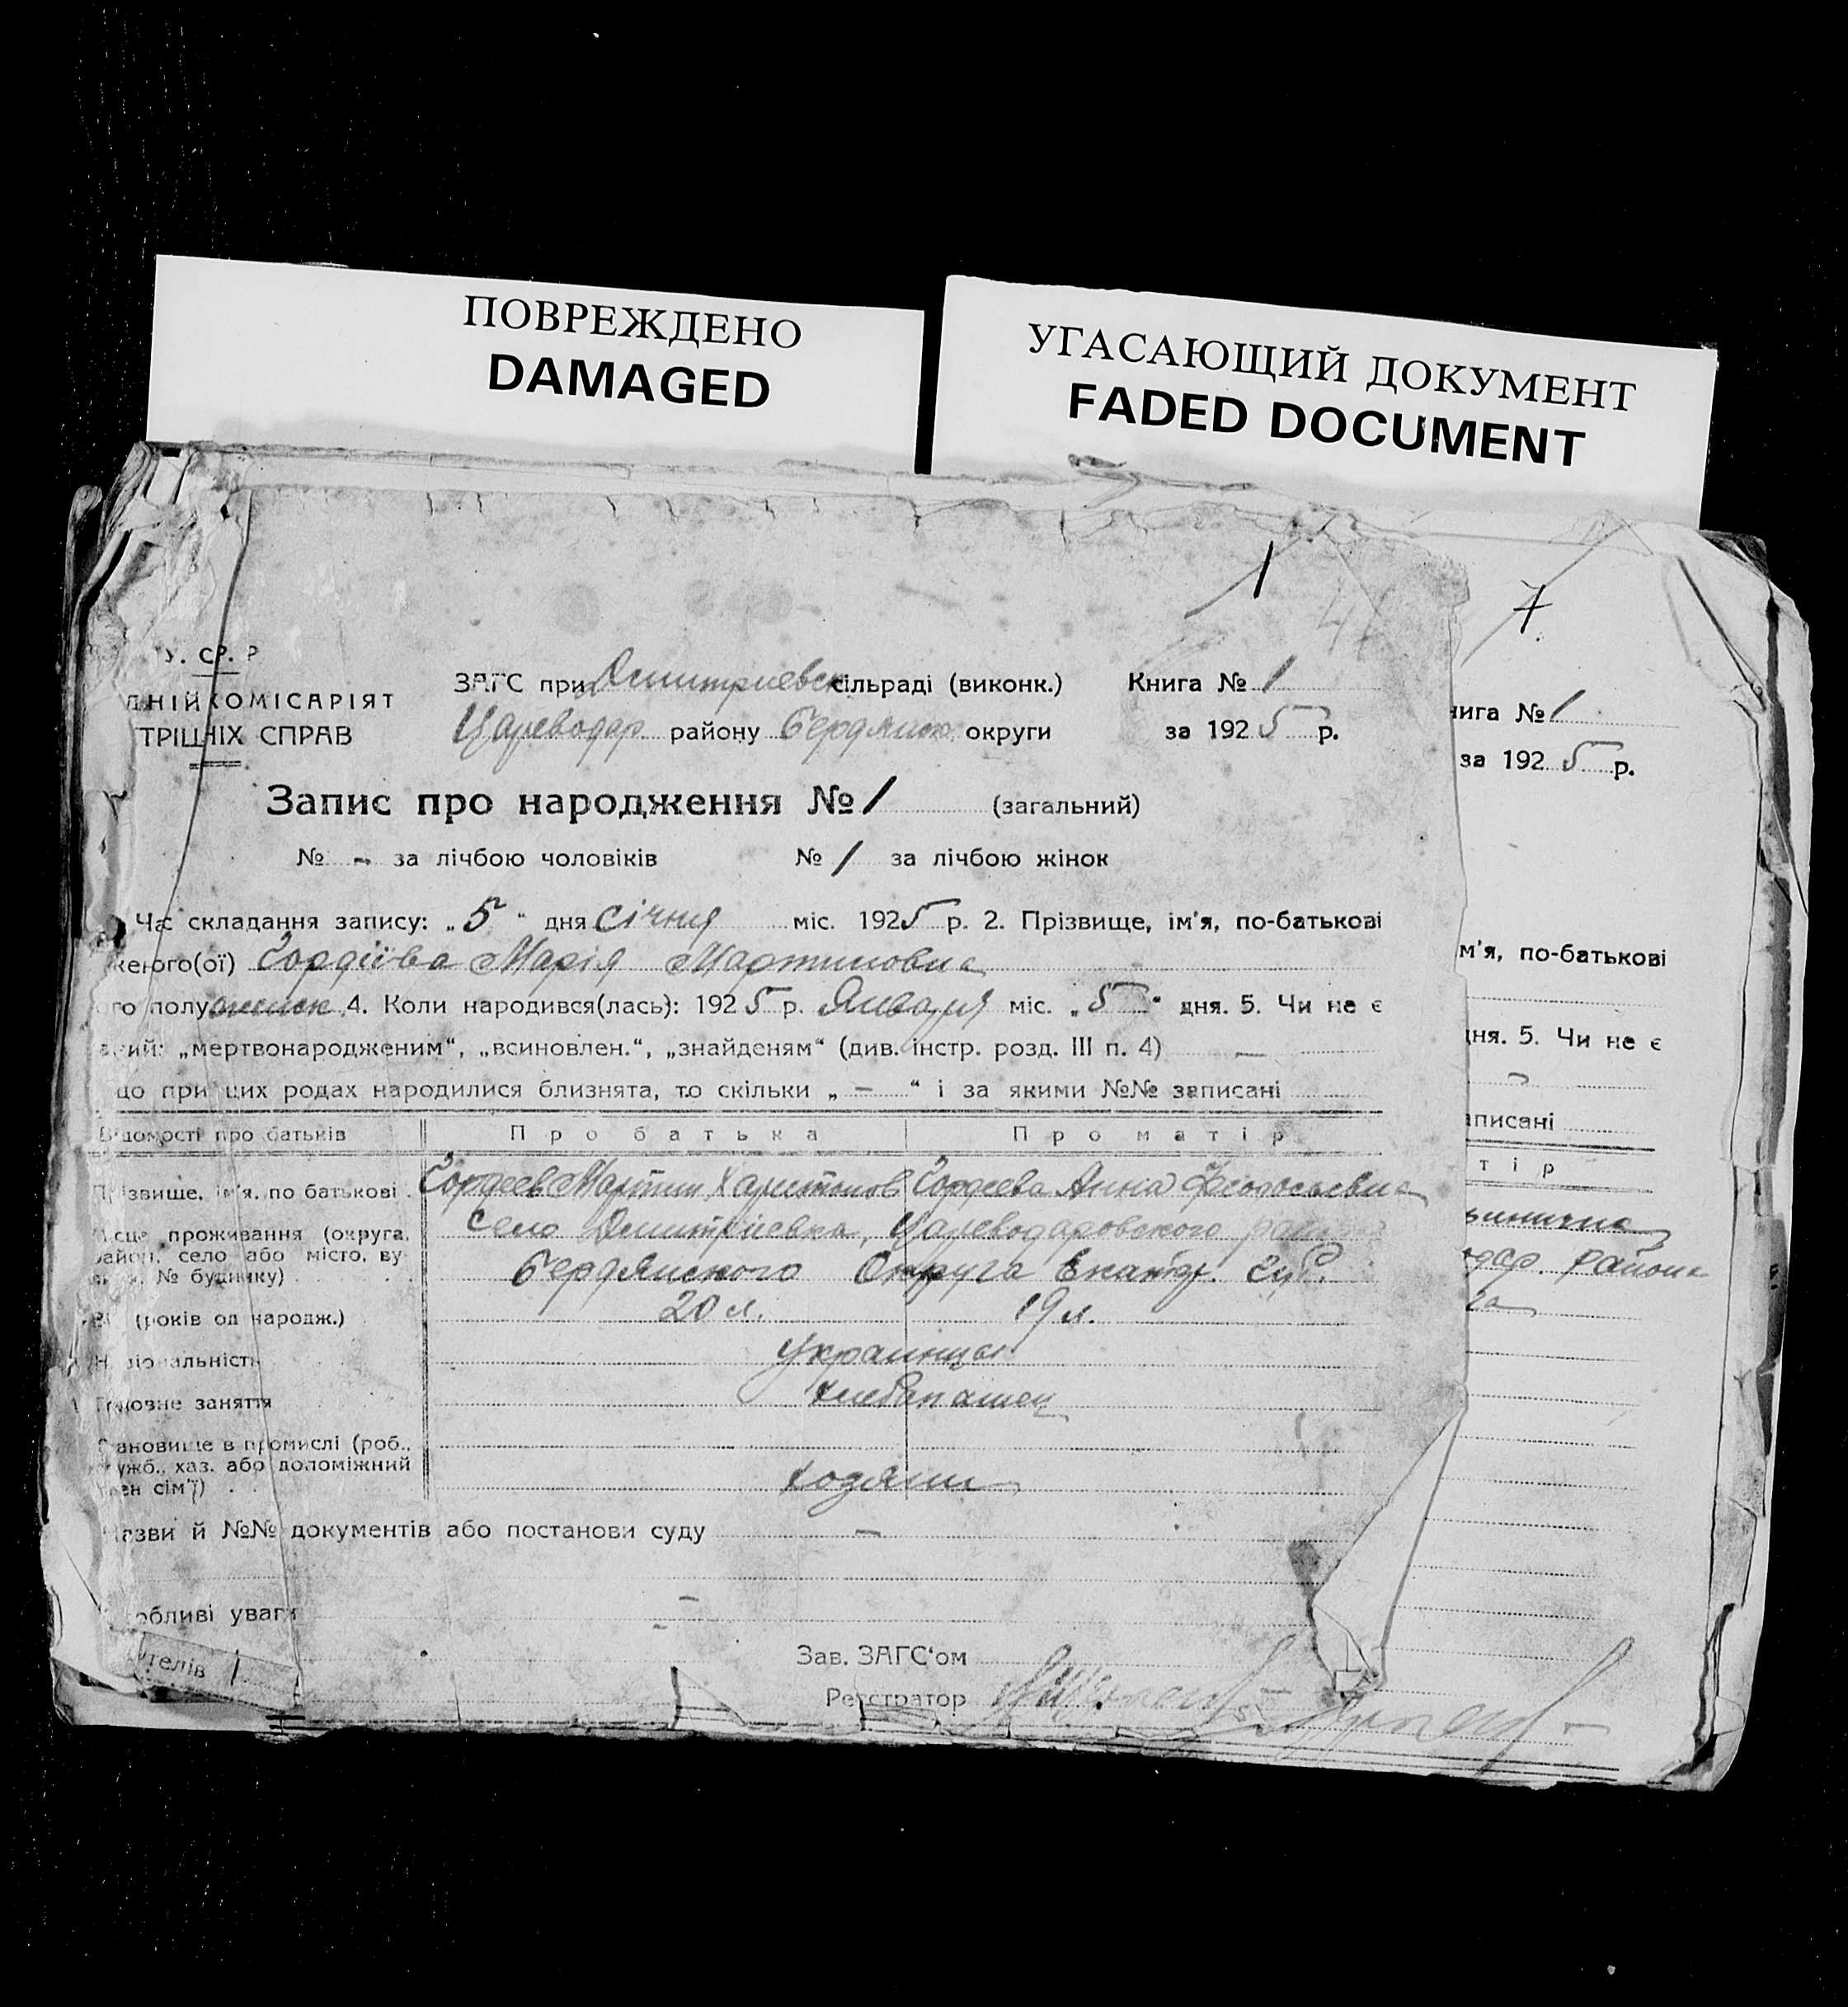 ПОВРЕЖДЕНО
DAMAGED
УГАСАЮЩИЙ ДОКУМЕНТ
FADED DOCUMENT
1
41
7
У. СР. Р
ДНІЙ КОМІСАРІЯТ
ТРІШНІХ СПРАВ
ЗАГС при Дмитриевск сільраді (виконк.) Книга № 1
Цареводар районy Бердянск округи за 1925 р.
Запис про народження № 1 (загальний)
№ - за лічбою чоловіків № 1 за лічбою жінок
Час складання запису: „5“ дня січня міс. 1925 р. 2. Прізвище, ім'я, по-батькові
женого(ої) Гордіїва Марія Мартиновна
ого полу 4. Коли народився(лась): 1925 р. Января міс. „5“ дня. 5. Чи не є
який: „мертвонародженим“, „всиновлен.“, „знайденям“ (див. інстр. розд. III п. 4) —
що при цих родах народилися близнята, то скільки „—“ і за якими №№ записані
Відомості про батьків Про батька Про матір
Прізвище, ім'я, по батькові Гордеев Мартин Харитонов Гордеева Анна Феодосьевна
Місце проживання (округа, село Дмитріевка, Цареводаровского
район, село або місто, ву-
№ будинку) Бердянского Округа Екатер. Губ.
(років од народж.) 20 л. 19 л.
Національність Украинцы
Головне заняття хлебопашец
Становище в промислі (роб.,
служб., хаз. або допоміжний
член сім'ї) хозяин
Назви й №№ документів або постанови суду —
Особливі уваги -
ителів 1
Зав. ЗАГС'ом
Реєстратор
нига № 1
за 1925 р.
м'я, по-батькові
дня. 5. Чи не є
аписані
тір
района